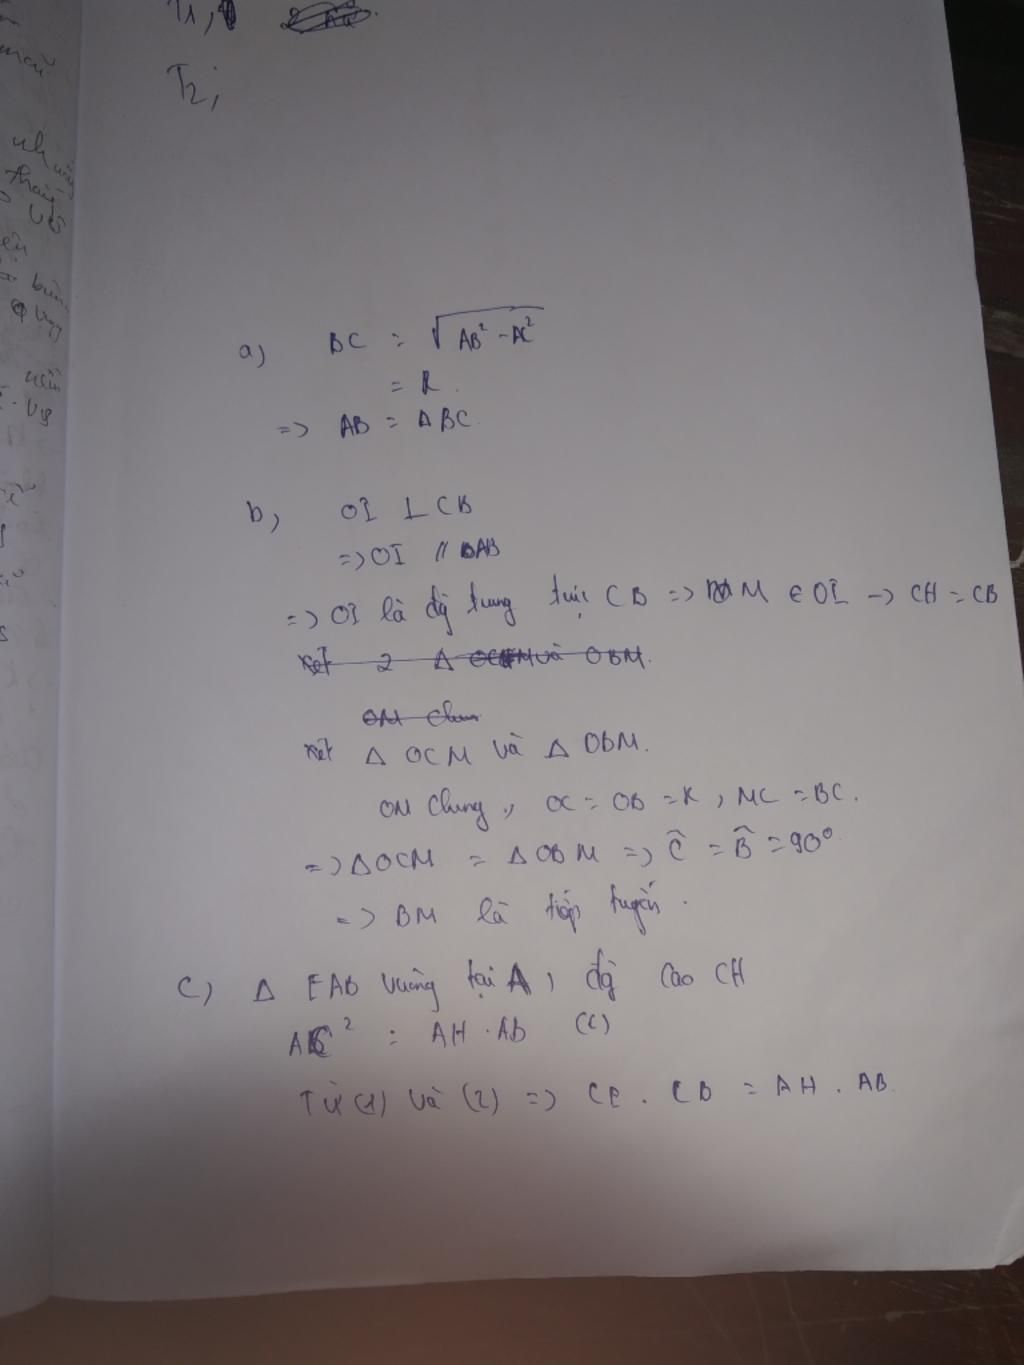 T1,
T2,
a) BC = √AB² - AC²
= R.
=> AB = ΔBC
b, OI ⊥ CB
=> OI // AB
=> OI là đg trung trực CB => M ∈ OI -> CH = CB
Xét 2 Δ OCM và OBM.
OM chun
Xét Δ OCM và Δ OBM.
OM chung, OC = OB = R, MC = BC.
=> ΔOCM = ΔOBM => Ĉ = B̂ = 90°
=> BM là tiếp tuyến.
C) Δ EAB vuông tại A, đg cao CH
AC² = AH . AB (2)
Từ (1) và (2) => CE . CB = AH . AB.